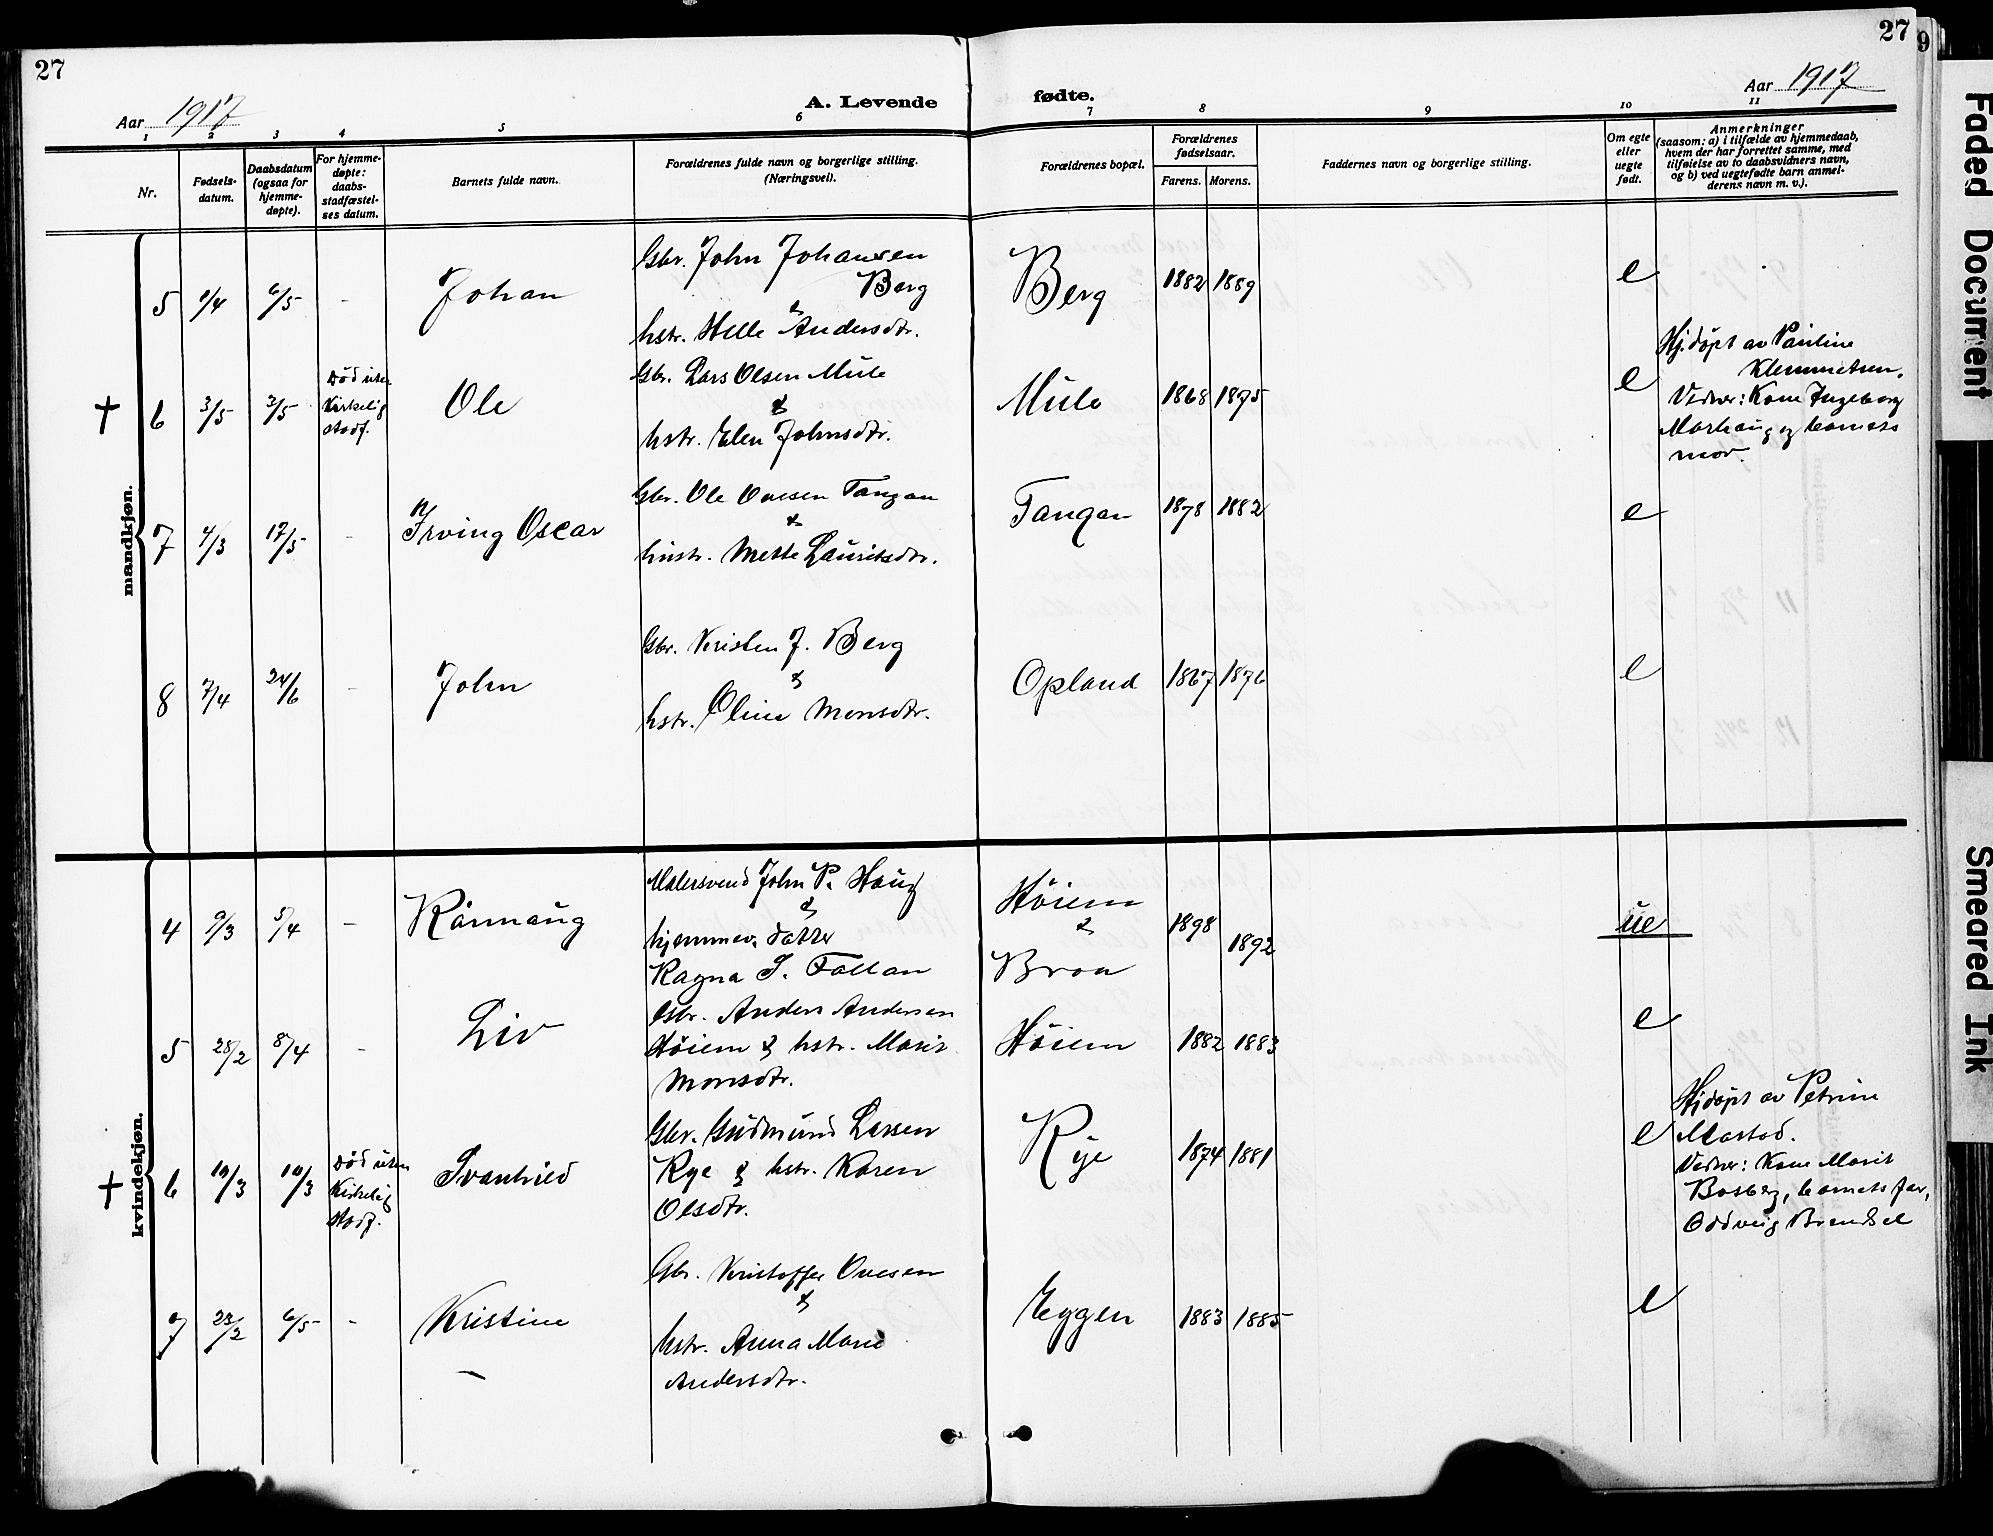 27
27
9
Aar 1917
A. Levende
fødte.
Aar 1917
1
2
3
4
5
6
7
8
9
10
11
Nr.
Fødsels-
datum.
Daabsdatum
(ogsaa for
hjemme-
døpte).
For hjemme-
døpte:
daabs-
stadfæstel-
ses datum.
Barnets fulde navn.
Forældrenes fulde navn og borgerlige stilling.
(Næringsvei).
Forældrenes bopæl.
Forældrenes
fødselsaar.
Farens.
Morens.
Faddernes navn og borgerlige stilling.
Om egte
eller
uegte
født.
Anmerkninger
(saasom: a) i tilfælde av hjemmedaab,
hvem der har forrettet samme, med
tilføielse av to daabsvidners navn,
og b) ved uegtefødte barn anmel-
derens navn m. v.).
mandkjøn.
5 1/4 6/5 - Johan
Gbr. John Johansen
Berg
&
hstr. Helle Andersdtr.
Berg 1882 1889 e
† 6 3/5 3/5
Död uten
Kirkelig
stadf.
Ole
Gbr. Lars Olsen Mule
&
hstr. Elen Johnsdtr.
Mule 1868 1875 e
Hj.döpt av Pauline
Klemmetsen.
Vidner: Kone Ingeborg
Marhaug og barnets
mor.
7 4/3 17/5 - Irving Oscar
Gbr. Ole Ovesen Tangan
&
hustr. Mette Lauritsdtr.
Tangan 1878 1882 e
8 7/4 24/6 - John
Gbr. Kristen J. Berg
&
hstr. Oline Monsdtr.
Opland 1867 1876 e
kvindekjøn.
4 9/3 5/4 - Rånnaug
Malersvend John P. Haug
&
hjemmev. datter
Ragna S. Fallan
Höiem
&
Broa
1898 1892 ue
5 28/2 8/4 - Liv
Gbr. Anders Andersen
Höiem & hstr. Marit
Monsdtr.
Höiem 1882 1883 e
† 6 10/3 10/3
Död uten
Kirkelig
stadf.
Svanhild
Gbr. Gudmund Larsen
Rye & hstr. Karen
Olsdtr.
Rye 1874 1881 e
Hjdöpt av Petrine
Mastad.
Vidner: Kone Marit
Bosberg, barnets far,
Oddveig Brendsel
7 23/2 6/5 - Kristine
Gbr. Kristoffer Ovesen
&
hstr. Anna Marie
Andersdtr.
Eggen 1883 1885 e
Faded Document
Smeared Ink